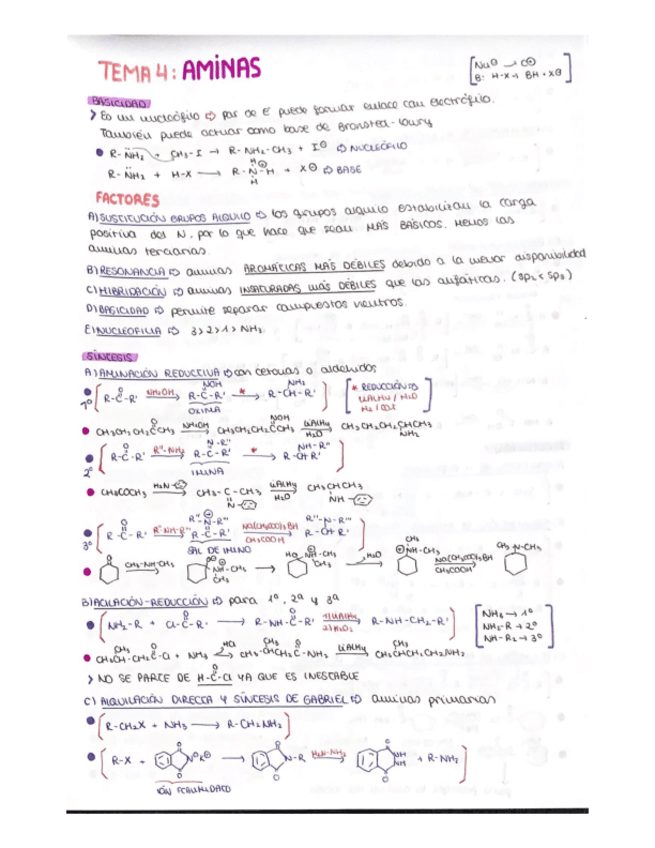 TEMA 4: AMINAS
[Nu⊖ → C⊕
B: H-X → BH + X⊖]
BASICIDAD
> Es un nucleófilo ⇨ Par de e⁻ puede formar enlace con electrófilo.
También puede actuar como base de Bronsted-Lowry
• R-NH₂ + CH₃-I → R-NH₂-CH₃ + I⊖ ⇨ NUCLEÓFILO
R-NH₂ + H-X → R-N-H + X⊖ ⇨ BASE
FACTORES
A) SUSTITUCIÓN GRUPOS ALQUILO ⇨ los grupos alquilo estabilizan la carga
positiva del N, por lo que hace que sean MÁS BÁSICOS. MENOS las
aminas terciarias.
B) RESONANCIA ⇨ aminas AROMÁTICAS MÁS DÉBILES debido a la menor disponibilidad
C) HIBRIDACIÓN ⇨ aminas INSATURADAS más DÉBILES que las alifáticas. (sp₂ < sp₃)
D) BASICIDAD ⇨ permite separar compuestos neutros.
E) NUCLEOFILIA ⇨ 3>2>1> NH₃
SÍNTESIS
A) AMINACIÓN REDUCTIVA ⇨ con cetonas o aldehídos
1º [R-C-R' NH₂OH → NOH R-C-R' OXIMA * → NH₂ R-CH-R'] [* REDUCCIÓN ⇨ LiAlH₄ / H₂O H₂ / cat]
• CH₃CH₂CH₂CCH₃ NH₂OH → NOH CH₃CH₂CH₂CCH₃ LiAlH₄ H₂O → CH₃CH₂CH₂CHCH₃ NH₂
2º [R-C-R' R''-NH₂ → N-R'' R-C-R' IMINA * → NH-R'' R-CH R']
• CH₃COCH₃ H₂N → CH₃-C-CH₃ N LiAlH₄ H₂O → CH₃CHCH₃ NH
3º [R-C-R' R''-NH-R''' → R''-N-R''' R-C-R' SAL DE IMINO Na(CH₃COO)₃BH CH₃COOH → R''-N-R''' R-CH R']
• O CH₃-NH-CH₃ → NH-CH₃ CH₃ → HO NH-CH₃ CH₃ -H₂O → CH₃ NH-CH₃ Na(CH₃COO)₃BH CH₃COOH → CH₃ N-CH₃
B) ACILACIÓN-REDUCCIÓN ⇨ para 1ª, 2ª y 3ª
• [NH₂-R + Cl-C-R' → R-NH-C-R' 1) LiAlH₄ 2) H₂O → R-NH-CH₂-R'] [NH₃ → 1º NH₂-R → 2º NH-R₂ → 3º]
• CH₃CH-CH₂C-Cl + NH₃ HCl → CH₃-CHCH₂C-NH₂ LiAlH₄ → CH₃CHCH₂CH₂NH₂
> NO SE PARTE DE H-C-Cl YA QUE ES INESTABLE
C) ALQUILACIÓN DIRECTA Y SÍNTESIS DE GABRIEL ⇨ aminas primarias
• [R-CH₂X + NH₃ → R-CH₂NH₂]
• [R-X + N⊖K⊕ → N-R H₂N-NH₂ → NH NH + R-NH₂]
IÓN FTALIMIDATO